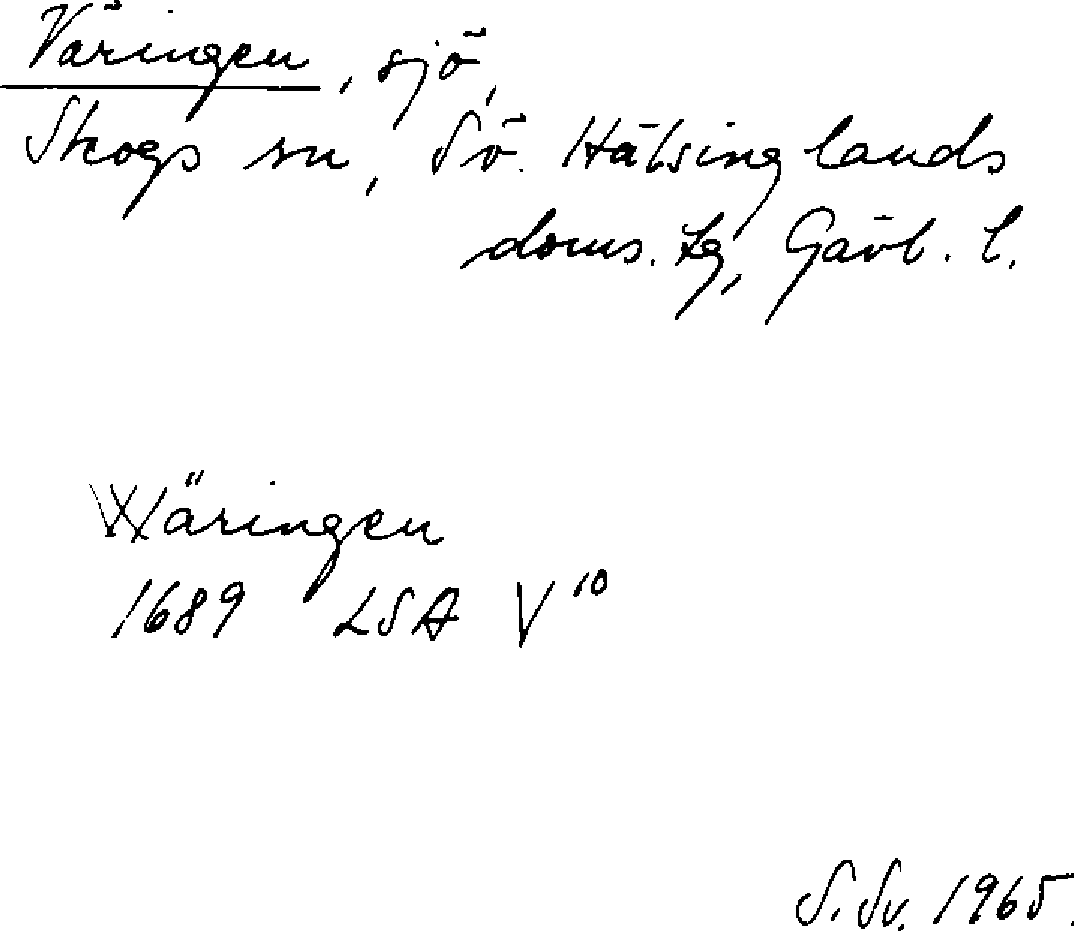 Väringen, sjö,
Skogs sn, Sö. Hälsinglands
doms. tg, Gävl. l.
Wäringen
1689 LSA V10
S. Sv. 1965.